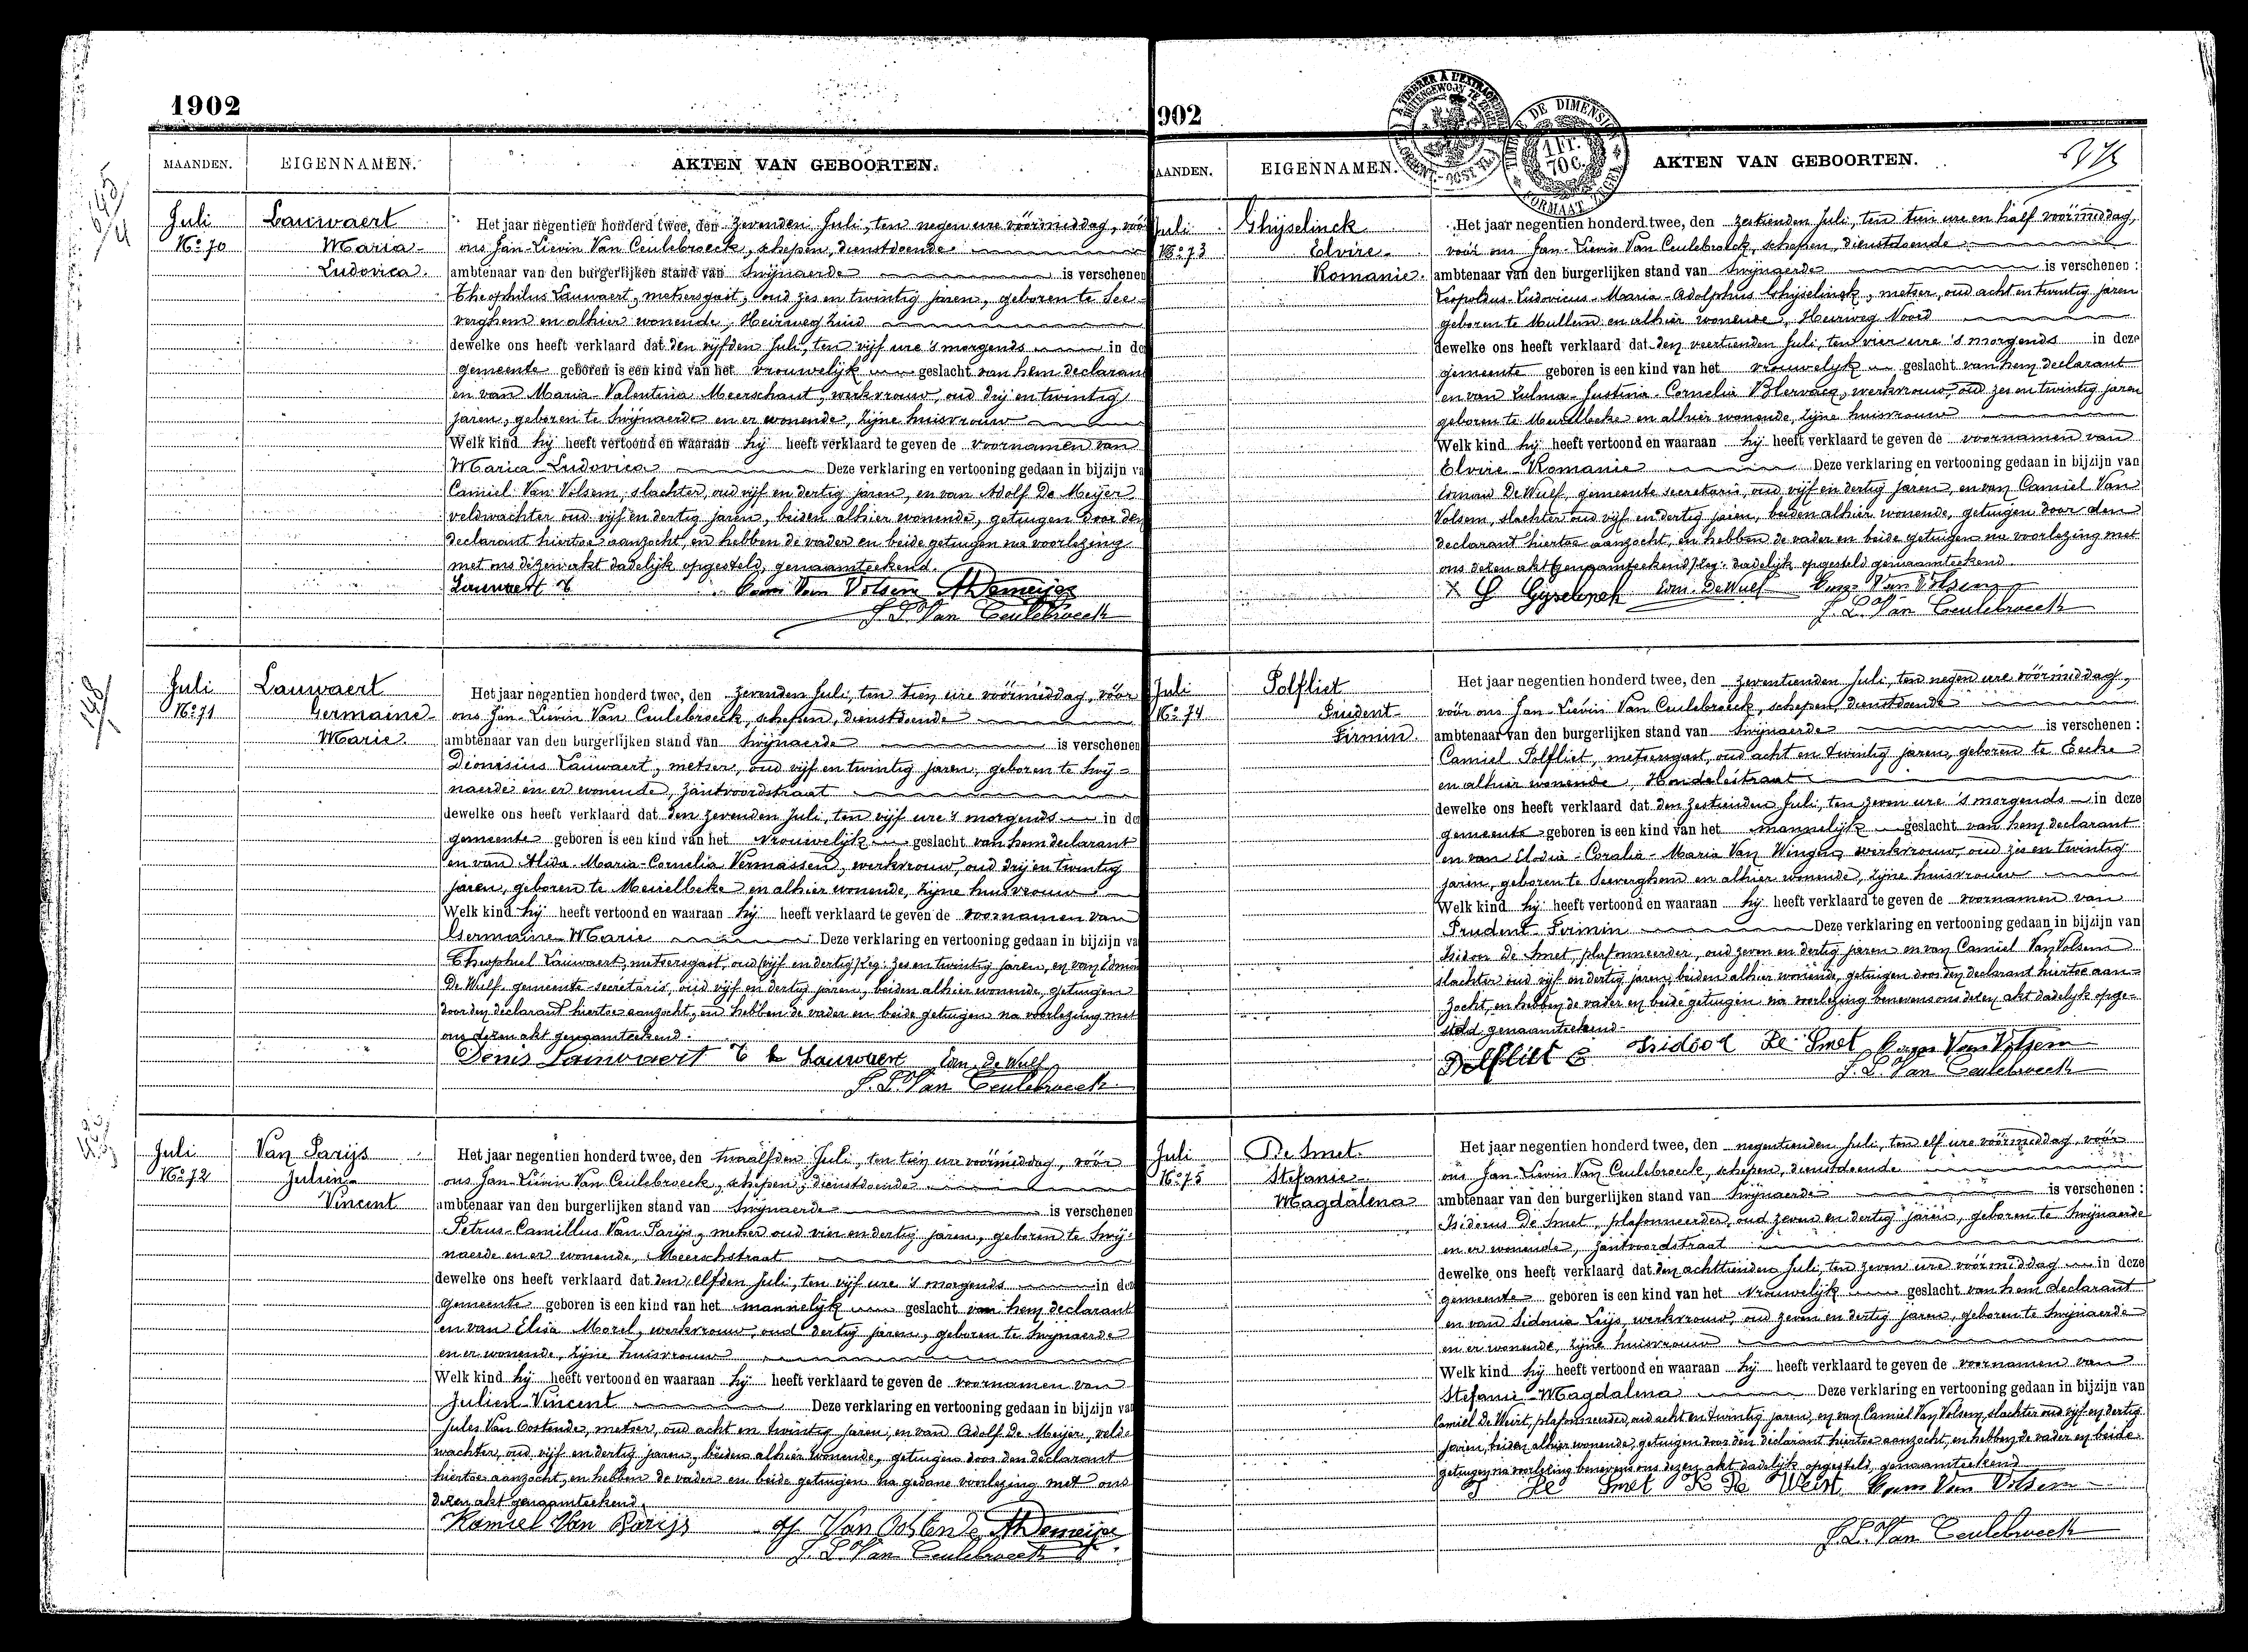 1902
MAANDEN. EIGENNAMEN. AKTEN VAN GEBOORTEN.
Juli
No 70
Lauwaert
Maria-
Ludovica.
Het jaar negentien honderd twee, den zevenden Juli, ten negen ure vóórmiddag, vóór
ons Jan-Lievin Van Ceulebroeck, schepen, dienstdoende
ambtenaar van den burgerlijken stand van Swijnaerde is verschenen
Theophilus Lauwaert, metsersgast, oud zes en twintig jaren, geboren te See-
verghem en alhier wonende, Heirweg Zuid
dewelke ons heeft verklaard dat den vijfden Juli, ten vijf ure 's morgends in de
gemeente geboren is een kind van het vrouwelijk geslacht van hem declarant
en van Maria-Valentina Meerschaut, werkvrouw, oud drij en twintig
jaren, geboren te Swijnaerde en er wonende, zijne huisvrouw
Welk kind hij heeft vertoond en waaraan hij heeft verklaard te geven de voornamen van
Maria-Ludovica Deze verklaring en vertooning gedaan in bijzijn va
Camiel Van Volsem, slachter, oud vijf en dertig jaren, en van Adolf De Meijer
veldwachter oud vijf en dertig jaren, beiden alhier wonende, getuigen door den
declarant hiertoe aanzocht, en hebben de vader en beide getuigen na voorlezing
met ons dezen akt dadelijk opgesteld, genaamteekend.
Lauwaert T Cam Van Volsem A Demeijer
J. L. Van Ceulebroeck
Juli
No 71
Lauwaert
Germaine-
Marie.
Het jaar negentien honderd twee, den zevenden Juli, ten tien ure vóórmiddag, vóór
ons Jan-Lievin Van Ceulebroeck, schepen, dienstdoende
ambtenaar van den burgerlijken stand van Swijnaerde is verschenen
Dionisius Lauwaert, metser, oud vijf en twintig jaren, geboren te Swij-
naerde en er wonende, Zantvoordstraat
dewelke ons heeft verklaard dat den zevenden Juli, ten vijf ure 's morgends in de
gemeente geboren is een kind van het vrouwelijk geslacht van hem declarant
en van Alida-Maria-Cornelia Vermassen, werkvrouw, oud drij en twintig
jaren, geboren te Meirelbeke en alhier wonende, zijne huisvrouw
Welk kind hij heeft vertoond en waaraan hij heeft verklaard te geven de voornamen van
Germaine-Marie Deze verklaring en vertooning gedaan in bijzijn va
Theophiel Lauwaert, metsersgast, oud (vijf en dertig) leg: zes en twintig jaren, en van Edmon
De Wulf gemeente-secretaris, oud vijf en dertig jaren, beiden alhier wonende, getuigen
door den declarant hiertoe aanzocht, en hebben de vader en beide getuigen na voorlezing met
ons dezen akt genaamteekend.
Denis Lauwaert T Lauwaert Edm. De Wulf
J. L. Van Ceulebroeck
Juli
No 72
Van Parijs
Julien-
Vincent
Het jaar negentien honderd twee, den twaalfden Juli, ten tien ure vóórmiddag, vóór
ons Jan-Lievin Van Ceulebroeck, schepen, dienstdoende
ambtenaar van den burgerlijken stand van Swijnaerde is verschenen
Petrus-Camillus Van Parijs, metser oud vier en dertig jaren, geboren te Swij-
naerde en er wonende, Meerschstraat
dewelke ons heeft verklaard dat den elfden Juli, ten vijf ure 's morgends in de
gemeente geboren is een kind van het mannelijk geslacht van hem declarant
en van Elisa Morel, werkvrouw, oud dertig jaren, geboren te Swijnaerde
en er wonende, zijne huisvrouw
Welk kind hij heeft vertoond en waaraan hij heeft verklaard te geven de voornamen van
Julien-Vincent Deze verklaring en vertooning gedaan in bijzijn va
Jules Van Oostende, metser, oud acht en twintig jaren, en van Adolf De Meijer, veld-
wachter, oud vijf en dertig jaren, beiden alhier wonende, getuigen door den declarant
hiertoe aanzocht, en hebben de vader en beide getuigen na gedane voorlezing met ons
dezen akt genaamteekend.
Kamiel Van Parijs J Van Oostende A Demeijer
J. L. Van Ceulebroeck
902
AANDEN. EIGENNAMEN. AKTEN VAN GEBOORTEN.
TIMBRE DE DIMENSION
1 Fr.
70 C.
Juli
No 73
Ghijselinck
Elvire-
Romanie.
Het jaar negentien honderd twee, den zestienden Juli, ten tien ure en half vóórmiddag,
vóór ons Jan-Lievin Van Ceulebroeck, schepen, dienstdoende
ambtenaar van den burgerlijken stand van Swijnaerde is verschenen :
Leopoldus-Ludovicus-Maria-Adolphus Ghijselinck, metser, oud acht en twintig jaren
geboren te Mullem en alhier wonende, Heirweg Noord
dewelke ons heeft verklaard dat den veertienden Juli, ten vier ure 's morgends in deze
gemeente geboren is een kind van het vrouwelijk geslacht van hem declarant
en van Zulma-Justina-Cornelia Blervacq, werkvrouw, oud zes en twintig jaren
geboren te Meirelbeke en alhier wonende, zijne huisvrouw
Welk kind hij heeft vertoond en waaraan hij heeft verklaard te geven de voornamen van
Elvire-Romanie Deze verklaring en vertooning gedaan in bijzijn van
Edmon De Wulf, gemeente secretaris, oud vijf en dertig jaren, en van Camiel Van
Volsem, slachter oud vijf en dertig jaren, beiden alhier wonende, getuigen door den
declarant hiertoe aanzocht, en hebben de vader en beide getuigen na voorlezing met
ons dezen akt (genaamteekend) leg: dadelijk opgesteld genaamteekend
Gyselinck Edm. De Wulf Cam Van Volsem
J. L. Van Ceulebroeck
Juli
No 74
Polfliet
Prudent-
Firmin.
Het jaar negentien honderd twee, den zeventienden Juli, ten negen ure vóórmiddag,
vóór ons Jan-Lievin Van Ceulebroeck, schepen, dienstdoende
ambtenaar van den burgerlijken stand van Swijnaerde is verschenen :
Camiel Polfliet, metsersgast, oud acht en twintig jaren, geboren te Eecke
en alhier wonende, Hondelestraat
dewelke ons heeft verklaard dat den zestienden Juli, ten zeven ure 's morgends in deze
gemeente geboren is een kind van het mannelijk geslacht van hem declarant
en van Elodia-Coralia-Maria Van Wingen, werkvrouw, oud zes en twintig
jaren, geboren te Seeverghem en alhier wonende, zijne huisvrouw
Welk kind hij heeft vertoond en waaraan hij heeft verklaard te geven de voornamen van
Prudent-Firmin Deze verklaring en vertooning gedaan in bijzijn van
Isidoor De Smet, plafonneerder, oud zeven en dertig jaren en van Camiel Van Volsem
slachter oud vijf en dertig jaren, beiden alhier wonende, getuigen door den declarant hiertoe aan-
zocht, en hebben de vader en beide getuigen na voorlezing benevens ons dezen akt dadelijk opge-
steld genaamteekend.
Polfliet C Isidood De Smet Cam Van Volsem
J. L. Van Ceulebroeck
Juli
No 75
De Smet.
Stefanie-
Magdalena
Het jaar negentien honderd twee, den negentienden Juli, ten elf ure vóórmiddag, vóór
ons Jan-Lievin Van Ceulebroeck, schepen, dienstdoende
ambtenaar van den burgerlijken stand van Swijnaerde is verschenen :
Isidorus De Smet, plafonneerder, oud zeven en dertig jaren, geboren te Swijnaerde
en er wonende, Zantvoordstraat
dewelke ons heeft verklaard dat den achttienden Juli, ten zeven ure vóórmiddag in deze
gemeente geboren is een kind van het vrouwelijk geslacht van hem declarant
en van Sidonia Leijs, werkvrouw, oud zeven en dertig jaren, geboren te Swijnaerde
en er wonende, zijne huisvrouw
Welk kind hij heeft vertoond en waaraan hij heeft verklaard te geven de voornamen van
Stefanie-Magdalena Deze verklaring en vertooning gedaan in bijzijn van
Camiel De Weirt, plafonneerder, oud acht en twintig jaren, en van Camiel Van Volsem, slachter oud vijf en dertig
jaren, beiden alhier wonende, getuigen door den declarant hiertoe aanzocht, en hebben de vader en beide
getuigen na voorlezing benevens ons dezen akt dadelijk opgesteld, genaamteekend
J De Smet K De Weirt Cam Van Volsem
J. L. Van Ceulebroeck